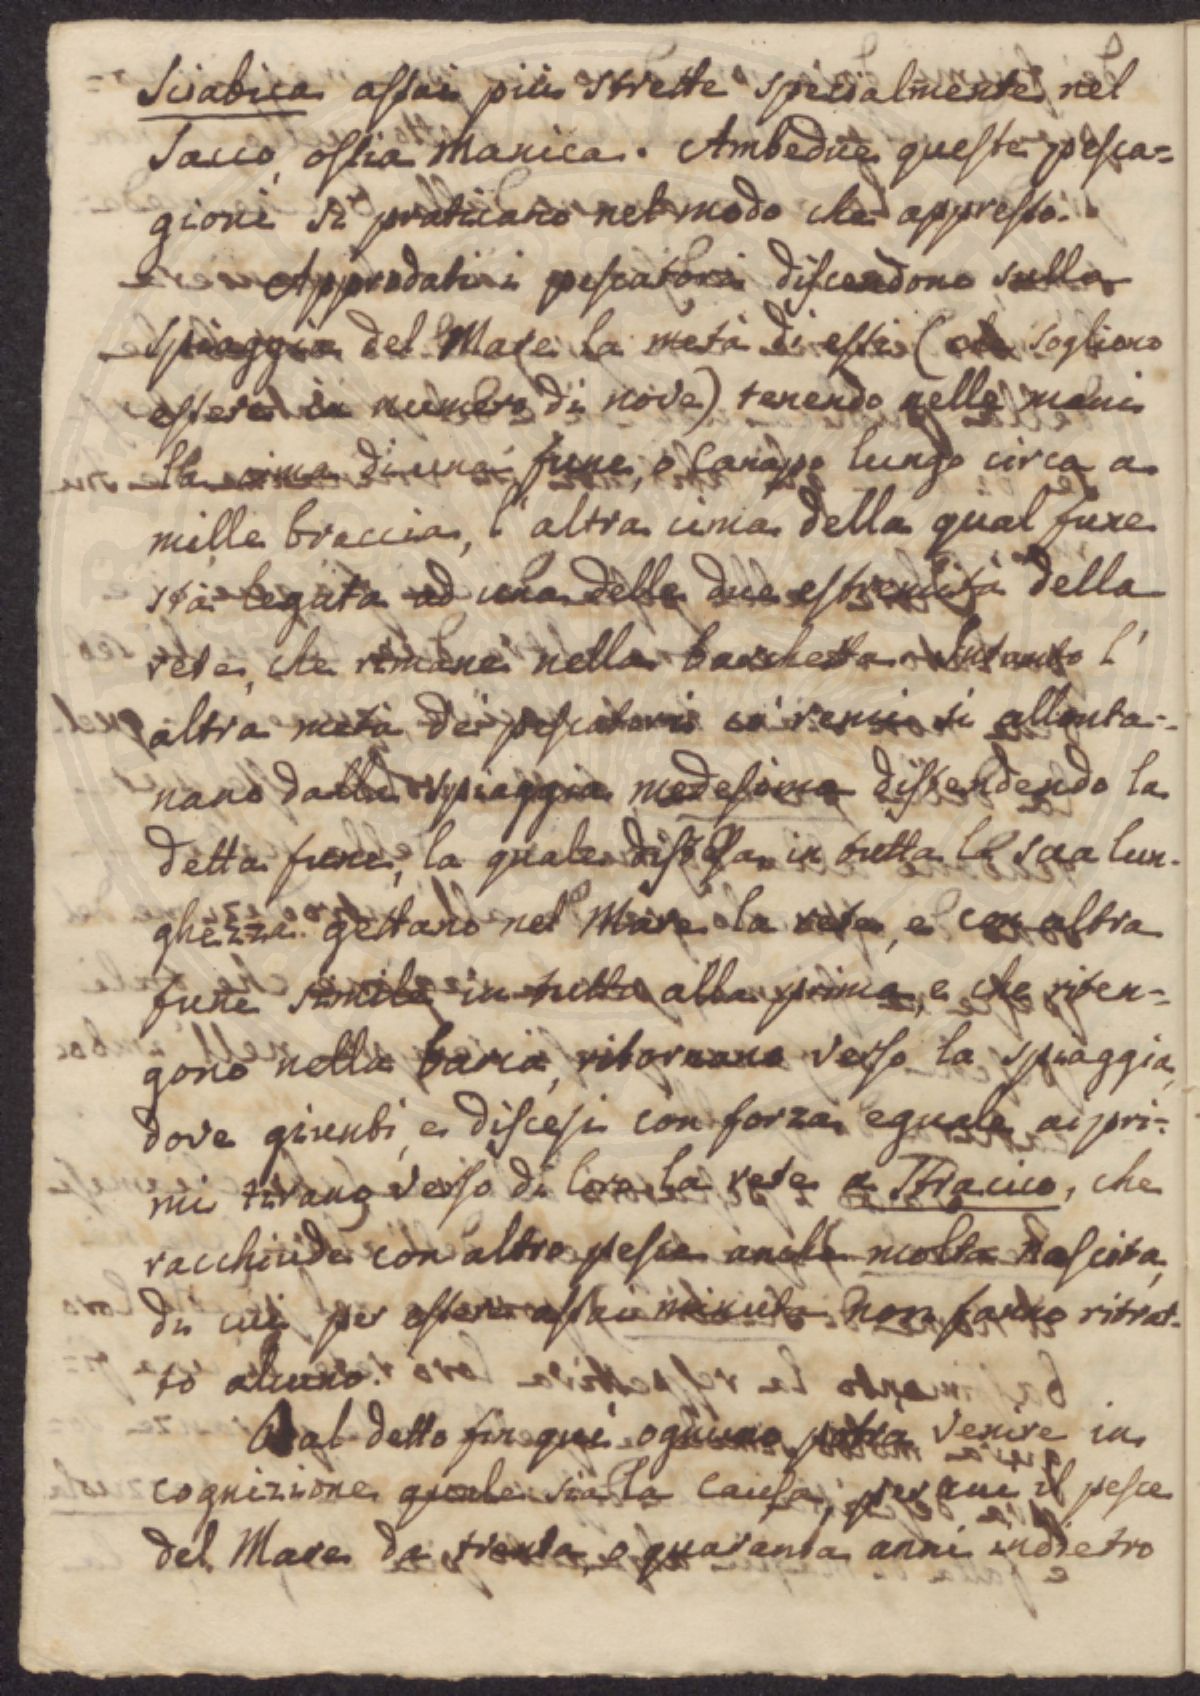 Sciabica assai più strette specialmente nel
Sacco, ossia Manica. Ambedue queste pesca=
gioni si praticano nel modo che appresso.
Approdati i pescatori discendono sulla
spiaggia del Mare la metà di essi (che sogliono
essere in numero di nove) tenendo nelle mani
la cima di una fune, o Canapo lungo circa a
mille braccia, l'altra cima della qual fune
stà legata ad una delle due estremità della
rete, che rimane nella barchetta. Intanto l'
altra metà dei pescatori co' remi si allonta=
nano dalla spiaggia medesima distendendo la
detta fune, la quale distesa in tutta la sua lun=
ghezza gettano nel Mare la rete, e con altra
fune simile in tutto alla prima, e che riten=
gono nella barca, ritornano verso la spiaggia,
dove giunti, e discesi con forza eguale ai pri=
mi tirano verso di loro la rete a Straccico, che
racchiude con altro pesce anche molta Nascita,
di cui per essere assai minuta non fanno ritrat=
to alcuno.
Dal detto fin qui ognuno potrà venire in
cognizione quale sia la causa, per cui il pesce
del Mare da trenta, o quaranta anni indietro